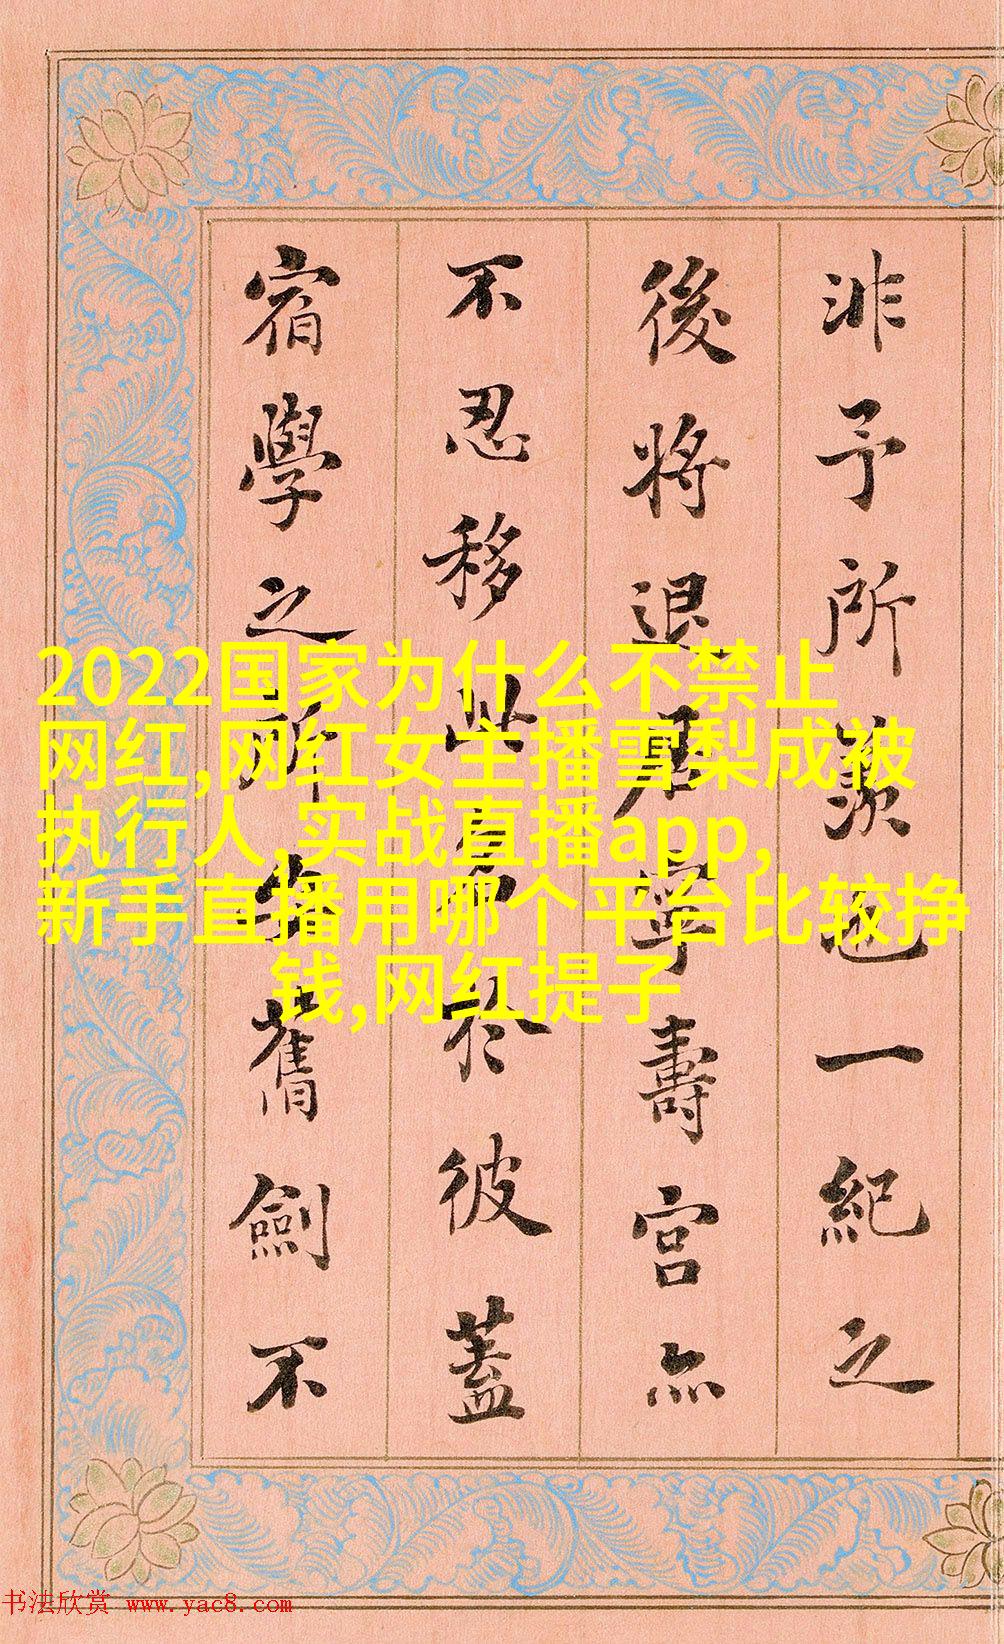 非予所羡也一纪之
後将退居寧壽宫亦
不忍移此名於彼蓋
宿學之所安舊劍不
2022国家为什么不禁止
网红,网红女主播雪梨成被
执行人,实战直播app,
新手直播用哪个平台比较挣
钱,网红提子
书法欣赏 www.yac8.com